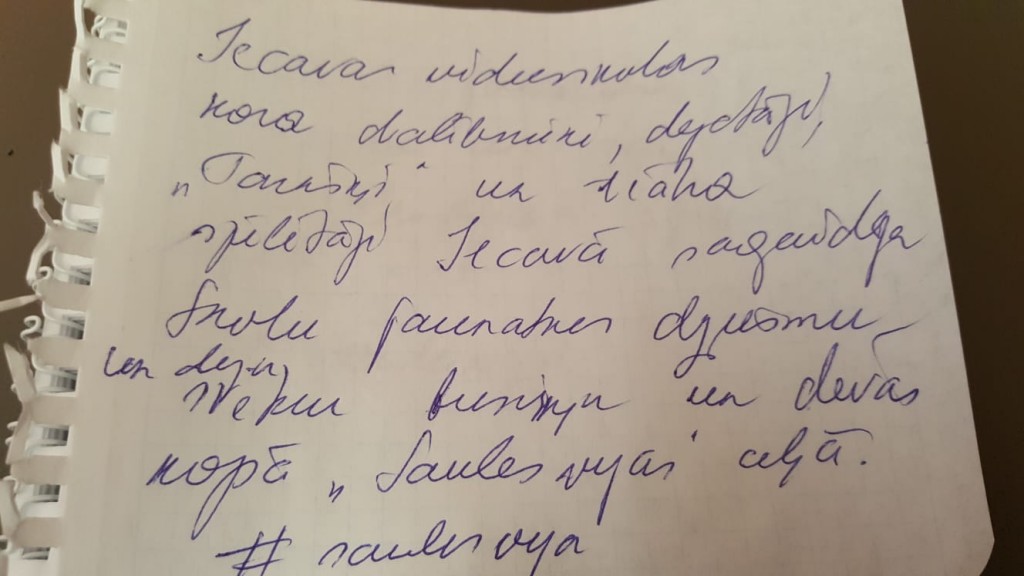 Iecavas vidusskolas
kora dalībnieki, dejotāji,
„Tarkšķi" un teātra
spēlētāji Iecavā sagaidīja
Skolu jaunatnes dziesmu
un deju
svētku busiņu un devās
kopā „Saules vijas" ceļā.
# saulesvija